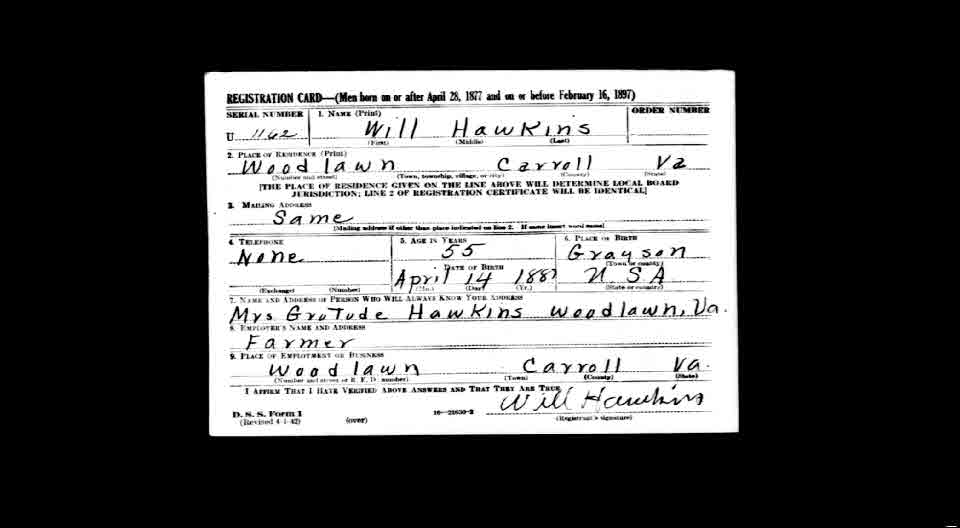 REGISTRATION CARD—(Men born on or after April 28, 1877 and on or before February 16, 1897)
SERIAL NUMBER 1. NAME (Print) ORDER NUMBER
U 1162 Will Hawkins
(First) (Middle) (Last)
2. PLACE OF RESIDENCE (Print)
Woodlawn Carroll Va
(Number and street) (Town, township, village, or city) (County) (State)
[THE PLACE OF RESIDENCE GIVEN ON THE LINE ABOVE WILL DETERMINE LOCAL BOARD
JURISDICTION; LINE 2 OF REGISTRATION CERTIFICATE WILL BE IDENTICAL]
3. MAILING ADDRESS
Same
[Mailing address if other than place indicated on line 2. If same insert word same]
4. TELEPHONE 5. AGE IN YEARS 6. PLACE OF BIRTH
None 55 Grayson
DATE OF BIRTH (Town or county)
April 14 1887 U.S.A
(Exchange) (Number) (Mo.) (Day) (Yr.) (State or country)
7. NAME AND ADDRESS OF PERSON WHO WILL ALWAYS KNOW YOUR ADDRESS
Mrs Grutude Hawkins Woodlawn, Va.
8. EMPLOYER'S NAME AND ADDRESS
Farmer
9. PLACE OF EMPLOYMENT OR BUSINESS
Woodlawn Carroll Va.
(Number and street or R. F. D. number) (Town) (County) (State)
I AFFIRM THAT I HAVE VERIFIED ABOVE ANSWERS AND THAT THEY ARE TRUE.
Will Hawkins
D. S. S. Form 1 16—21630-2
(Revised 4-1-42) (over) (Registrant's signature)